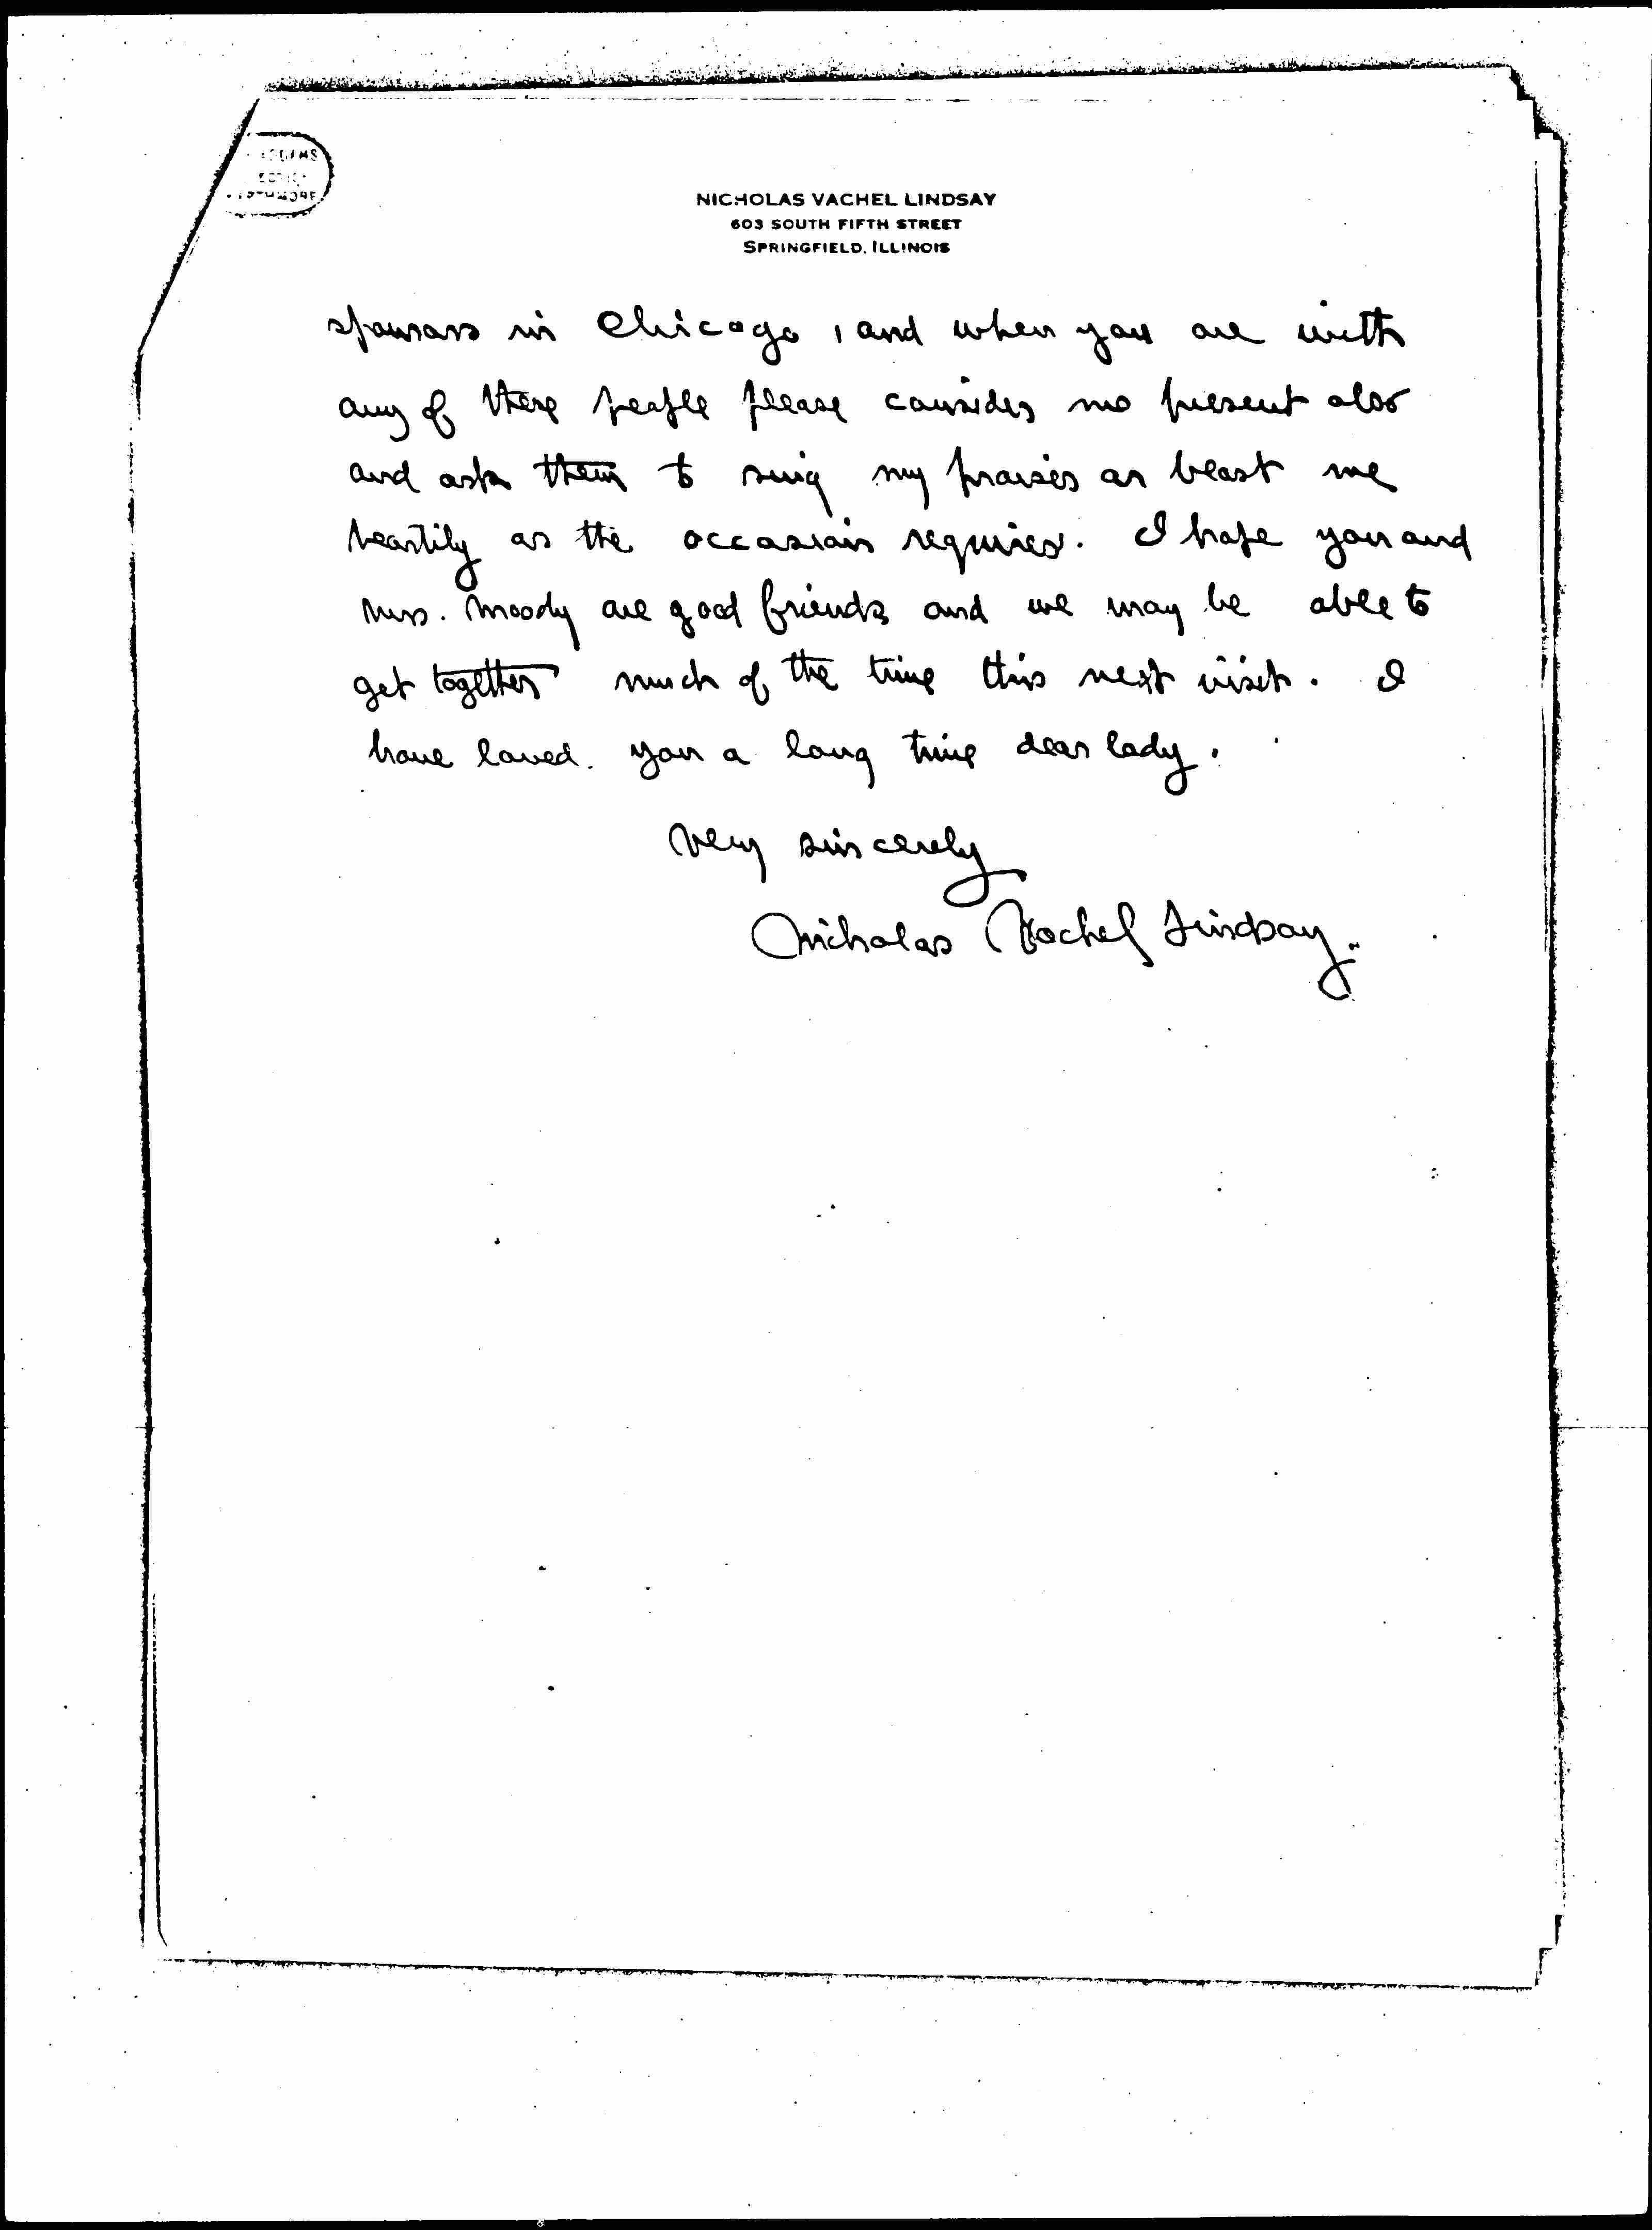 NICHOLAS VACHEL LINDSAY
603 SOUTH FIFTH STREET
SPRINGFIELD, ILLINOIS
sponsors in Chicago, and when you are with
any of these people please consider me present also
and ask them to sing my praises or blast me
heartily as the occasion requires. I hope you and
Mrs. Moody are good friends and we may be able to
get together much of the time this next visit. I
have loved you a long time dear lady.
Very sincerely
Nicholas Vachel Lindsay.